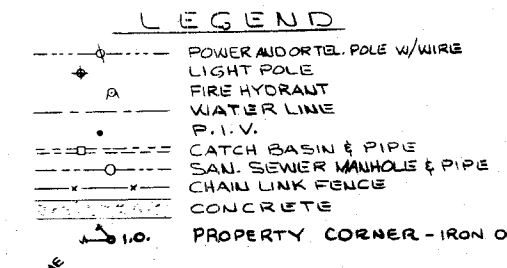 LEGEND
POWER AND OR TEL. POLE W/WIRE
LIGHT POLE
FIRE HYDRANT
WATER LINE
P.I.V.
CATCH BASIN & PIPE
SAN. SEWER MANHOLE & PIPE
CHAIN LINK FENCE
CONCRETE
I.O. PROPERTY CORNER - IRON O